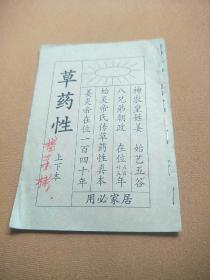 神农皇姓姜 始艺五谷
八兄弟朝政 在位
年
始炎帝氏传草药性真本
姜炎帝在位一百四十年
草药性
上下本
居家必用